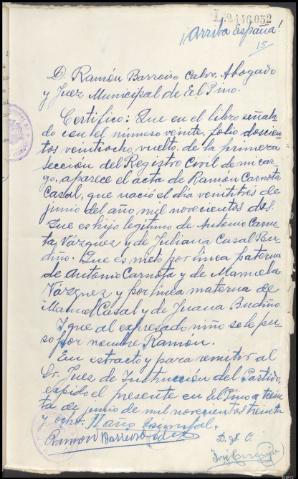 2446032
¡Arriba España!
D. Ramón Barreiro Calvo, Abogado
y Juez Municipal de El Pino.
Certifico: Que en el libro señala
do con el número veinte, folio doscien
tos veintiocho, vuelto, de la primera
sección del Registro Civil de mi car
go, aparece el acta de Ramón Carnota
Casal, que nació el día veintitres de
junio del año, mil novecientos dos.
Que es hijo legítimo de Antonio Carno
ta Vázquez y de Juliana Casal Bu
diño: Que es nieto por línea paterna
de Antonio Carnota y de Manuela
Vázquez y por línea materna de
Manuel Casal y de Juana Budiño
Y que al expresado niño se le pu
so por nombre Ramón.
En extracto y para remitir al
Sr. Juez de Instrucción del Partido,
expido el presente en El Pino a trein
ta de junio de mil novecientos treinta
y ocho. II año triunfal.
Ramón Barreiro
D. S. O.